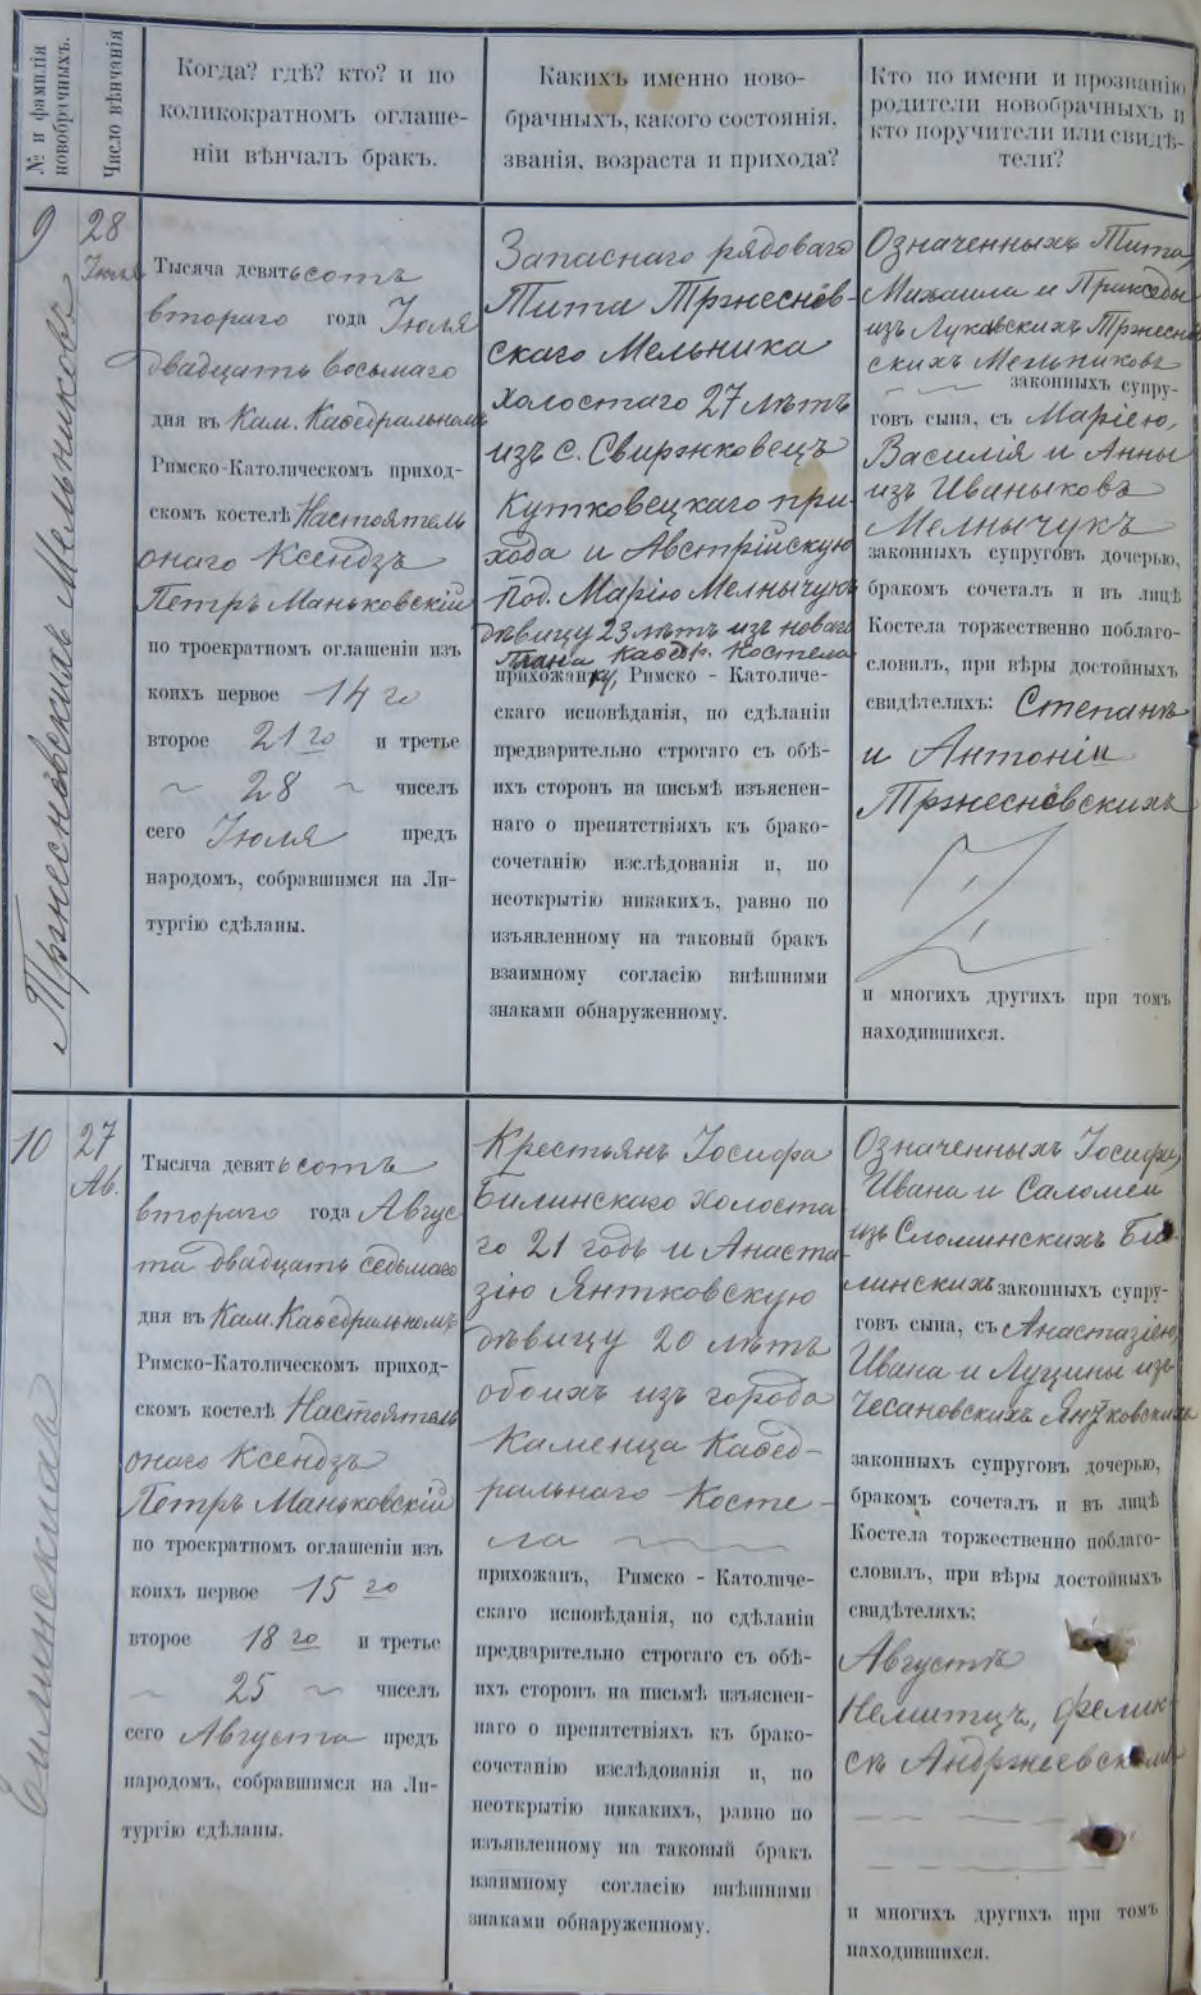 № и фамилія
новобрачныхъ.
Число вѣнчанія
Когда? гдѣ? кто? и по
коликократномъ оглаше-
ніи вѣнчалъ бракъ.
Какихъ именно ново-
брачныхъ, какого состоянія,
званія, возраста и прихода?
Кто по имени и прозванію
родители новобрачныхъ и
кто поручители или свидѣ-
тели?
9
Тржеснёвскихъ Мельниковъ
28
Іюля
Тысяча девятьсотъ
втораго года Іюля
двадцать восьмаго
дня въ Кам. Каѳедральномъ
Римско-Католическомъ приход-
скомъ костелѣ Настоятель
онаго Ксендзъ
Петръ Маньковскій
по троекратномъ оглашеніи изъ
коихъ первое 14 го
второе 21 го и третье
~ 28 ~ чиселъ
сего Іюля предъ
народомъ, собравшимся на Ли-
тургію сдѣланы.
Запаснаго рядоваго
Тита Тржеснёв-
скаго Мельника
холостаго 27 лѣтъ
изъ с. Свиржковецъ
Кутковецкаго при-
хода и Австрійскую
под. Марію Мелнычукъ
дѣвицу 23 лѣтъ изъ новаго
плана Каѳедр. Костела
прихожанку, Римско - Католиче-
скаго исповѣданія, по сдѣланіи
предварительно строгаго съ обѣ-
ихъ сторонъ на письмѣ изъяснен-
наго о препятствіяхъ къ брако-
сочетанію изслѣдованія и, по
неоткрытію никакихъ, равно по
изъявленному на таковый бракъ
взаимному согласію внѣшними
знаками обнаруженному.
Означенныхъ Тита,
Михаила и Пракседы
изъ Луковскихъ Тржеснёв
скихъ Мельниковъ
законныхъ супру-
говъ сына, съ Маріею,
Василія и Анны
изъ Иваныковъ
Мелнычукъ
законныхъ супруговъ дочерью,
бракомъ сочеталъ и въ лицѣ
Костела торжественно поблаго-
словилъ, при вѣры достойныхъ
свидѣтеляхъ: Степанъ
и Антоніи
Тржеснёвскихъ
и многихъ другихъ при томъ
находившихся.
10
27
Ав.
Тысяча девятьсотъ
втораго года Авгус
та двадцать седьмаго
дня въ Кам. Каѳедральномъ
Римско-Католическомъ приход-
скомъ костелѣ Настоятель
онаго Ксендзъ
Петръ Маньковскій
по троекратномъ оглашеніи изъ
коихъ первое 15 го
второе 18 го и третье
~ 25 ~ чиселъ
сего Августа предъ
народомъ, собравшимся на Ли-
тургію сдѣланы.
Крестьянъ Іосифа
Билинскаго холоста
го 21 годъ и Анаста
зію Янтковскую
дѣвицу 20 лѣтъ
обоихъ изъ города
Каменца Каѳед-
ральнаго Косте-
ла
прихожанъ, Римско - Католиче-
скаго исповѣданія, по сдѣланіи
предварительно строгаго съ обѣ-
ихъ сторонъ на письмѣ изъяснен-
наго о препятствіяхъ къ брако-
сочетанію изслѣдованія и, по
неоткрытію никакихъ, равно по
изъявленному на таковый бракъ
взаимному согласію внѣшними
знаками обнаруженному.
Означенныхъ Іосифа,
Ивана и Саломеи
изъ Сломинскихъ Би-
линскихъ законныхъ супру-
говъ сына, съ Анастазіею,
Ивана и Луцины изъ
Чесановскихъ Янтковскихъ
законныхъ супруговъ дочерью,
бракомъ сочеталъ и въ лицѣ
Костела торжественно поблаго-
словилъ, при вѣры достойныхъ
свидѣтеляхъ:
Августъ
Немитцъ, Фелик-
съ Андржеевскими
и многихъ другихъ при томъ
находившихся.